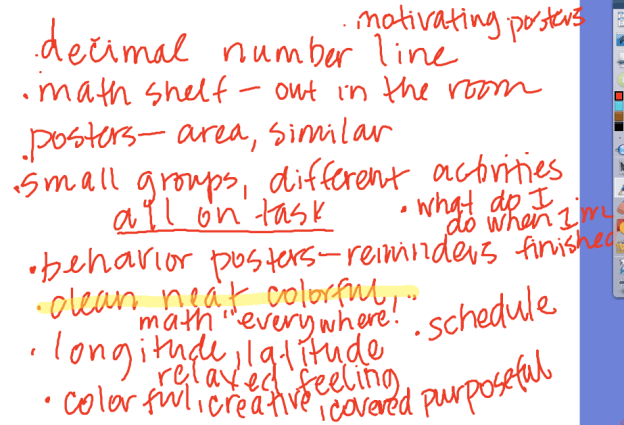 . motivating posters
. decimal number line
. math shelf - out in the room
. posters - area, similar
. small groups, different activities
all on task
. what do I
do when I'm
finished
. behavior posters - reminders
. clean neat colorful,
math "everywhere!
. schedule
. longitude, latitude
relaxed feeling
. colorful, creative, covered purposeful